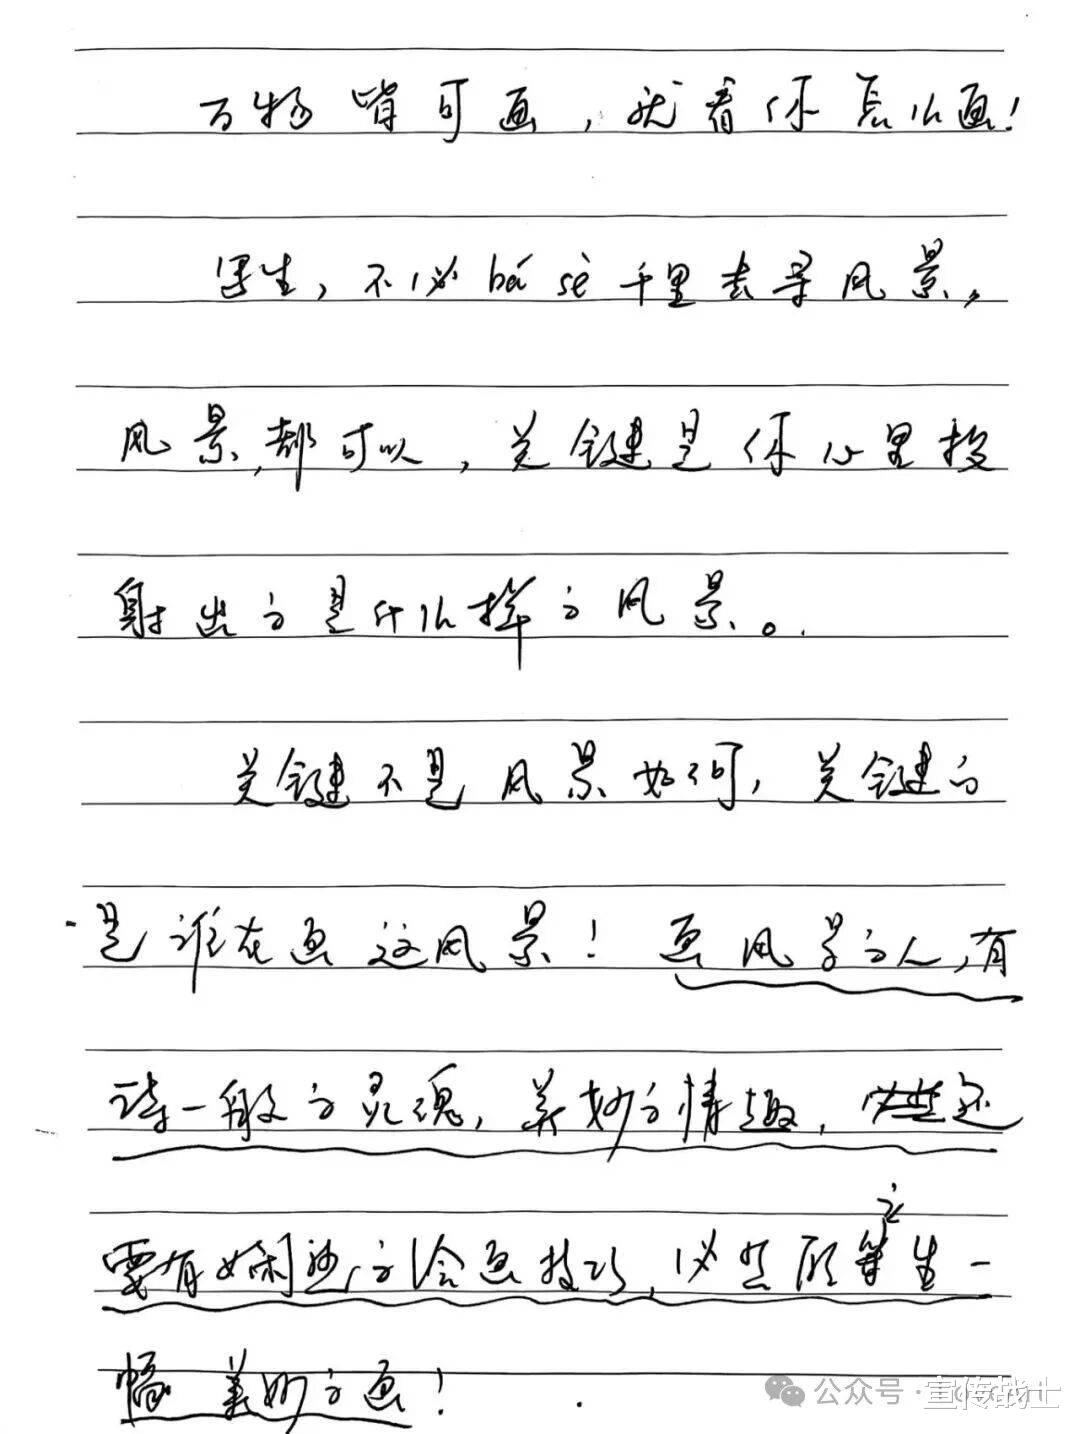 万物皆可画，就看你怎么画！
写生，不必bá sè千里去寻风景。
风景，都可以，关键是你心里投
射出的是什么样的风景。
关键不是风景如何，关键的
是谁在画这风景！画风景的人，有
诗一般的灵魂，美妙的情趣，还
之
要有娴熟的绘画技巧，必然
生一
幅美妙的画！
公众号·
宣传战士